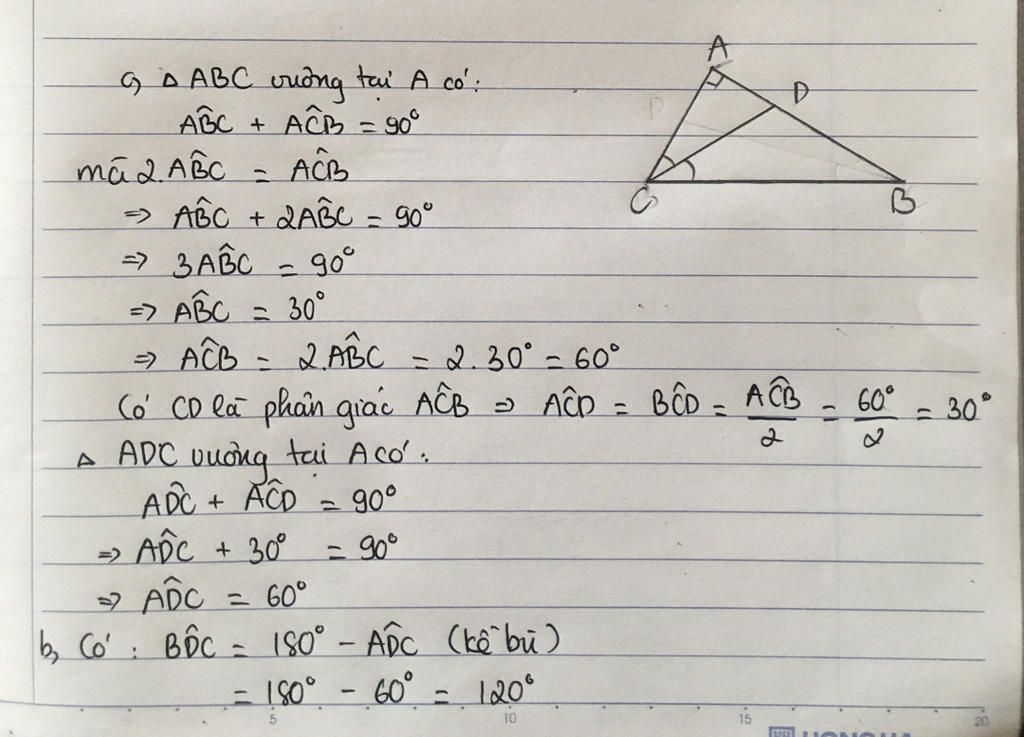 a, △ ABC vuông tại A có:
AB̂C + AĈB = 90°
mà 2.AB̂C = AĈB
=> AB̂C + 2AB̂C = 90°
=> 3AB̂C = 90°
=> AB̂C = 30°
=> AĈB = 2.AB̂C = 2.30° = 60°
Có CD là phân giác AĈB => AĈD = BĈD = AĈB/2 = 60°/2 = 30°
△ ADC vuông tại A có:
AD̂C + AĈD = 90°
=> AD̂C + 30° = 90°
=> AD̂C = 60°
b, Có: BD̂C = 180° - AD̂C (kề bù)
= 180° - 60° = 120°
A
D
C
B
5 10 15 20